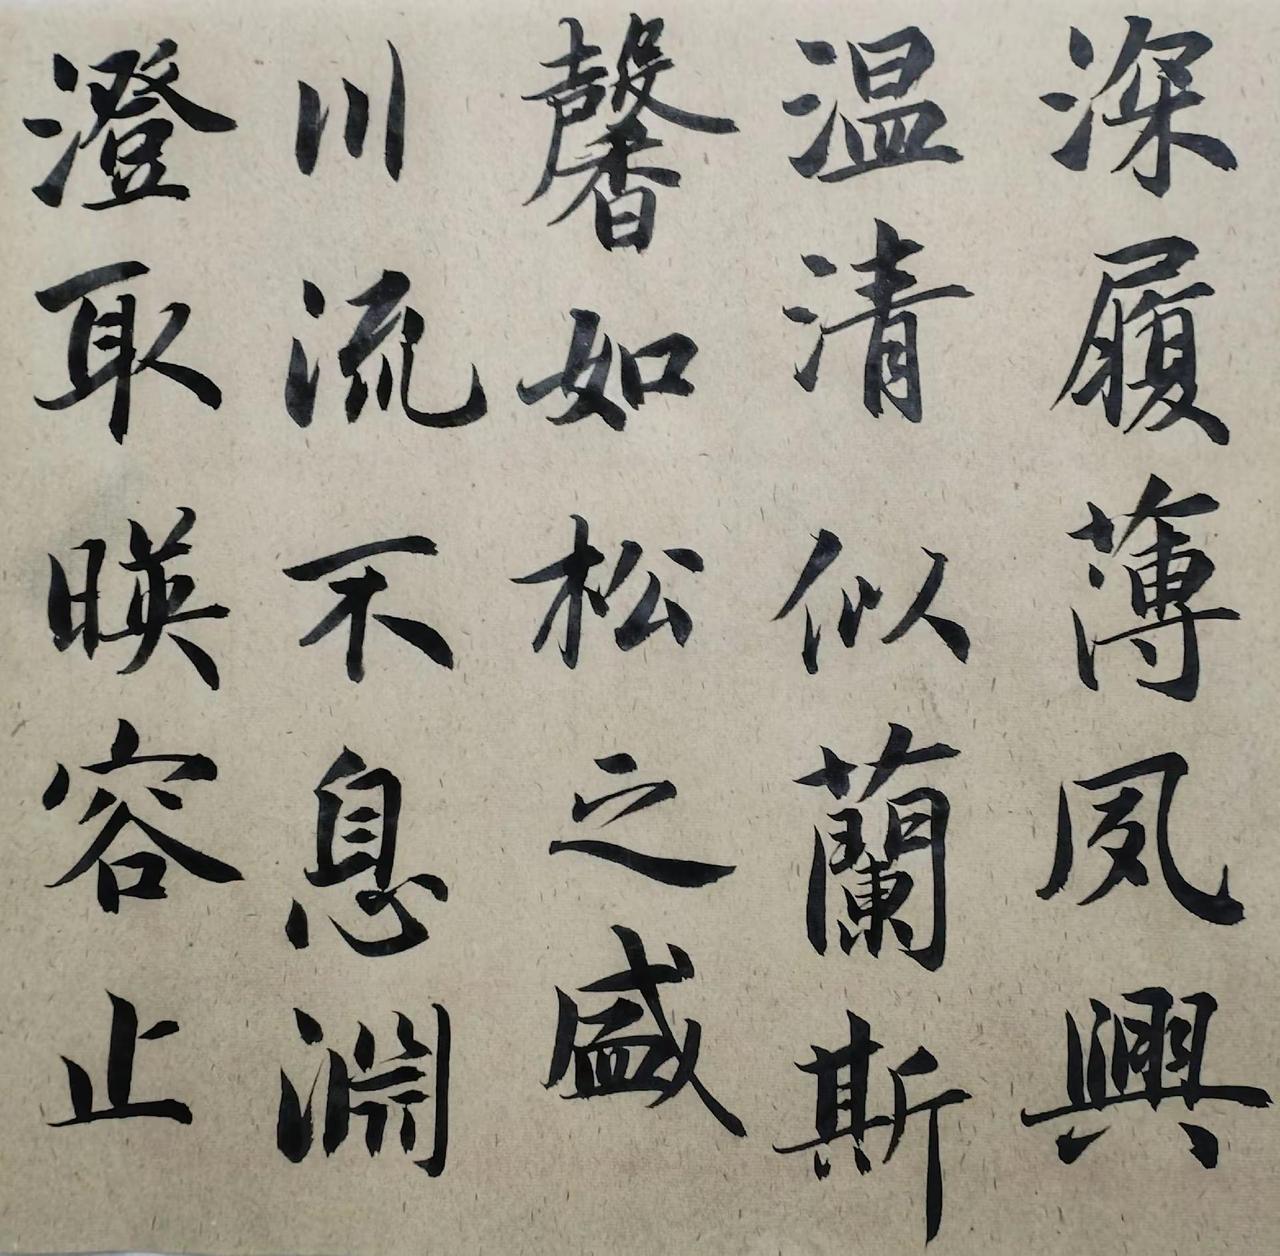 深履薄夙興
温清似蘭斯
馨如松之盛
川流不息淵
澄取暎容止